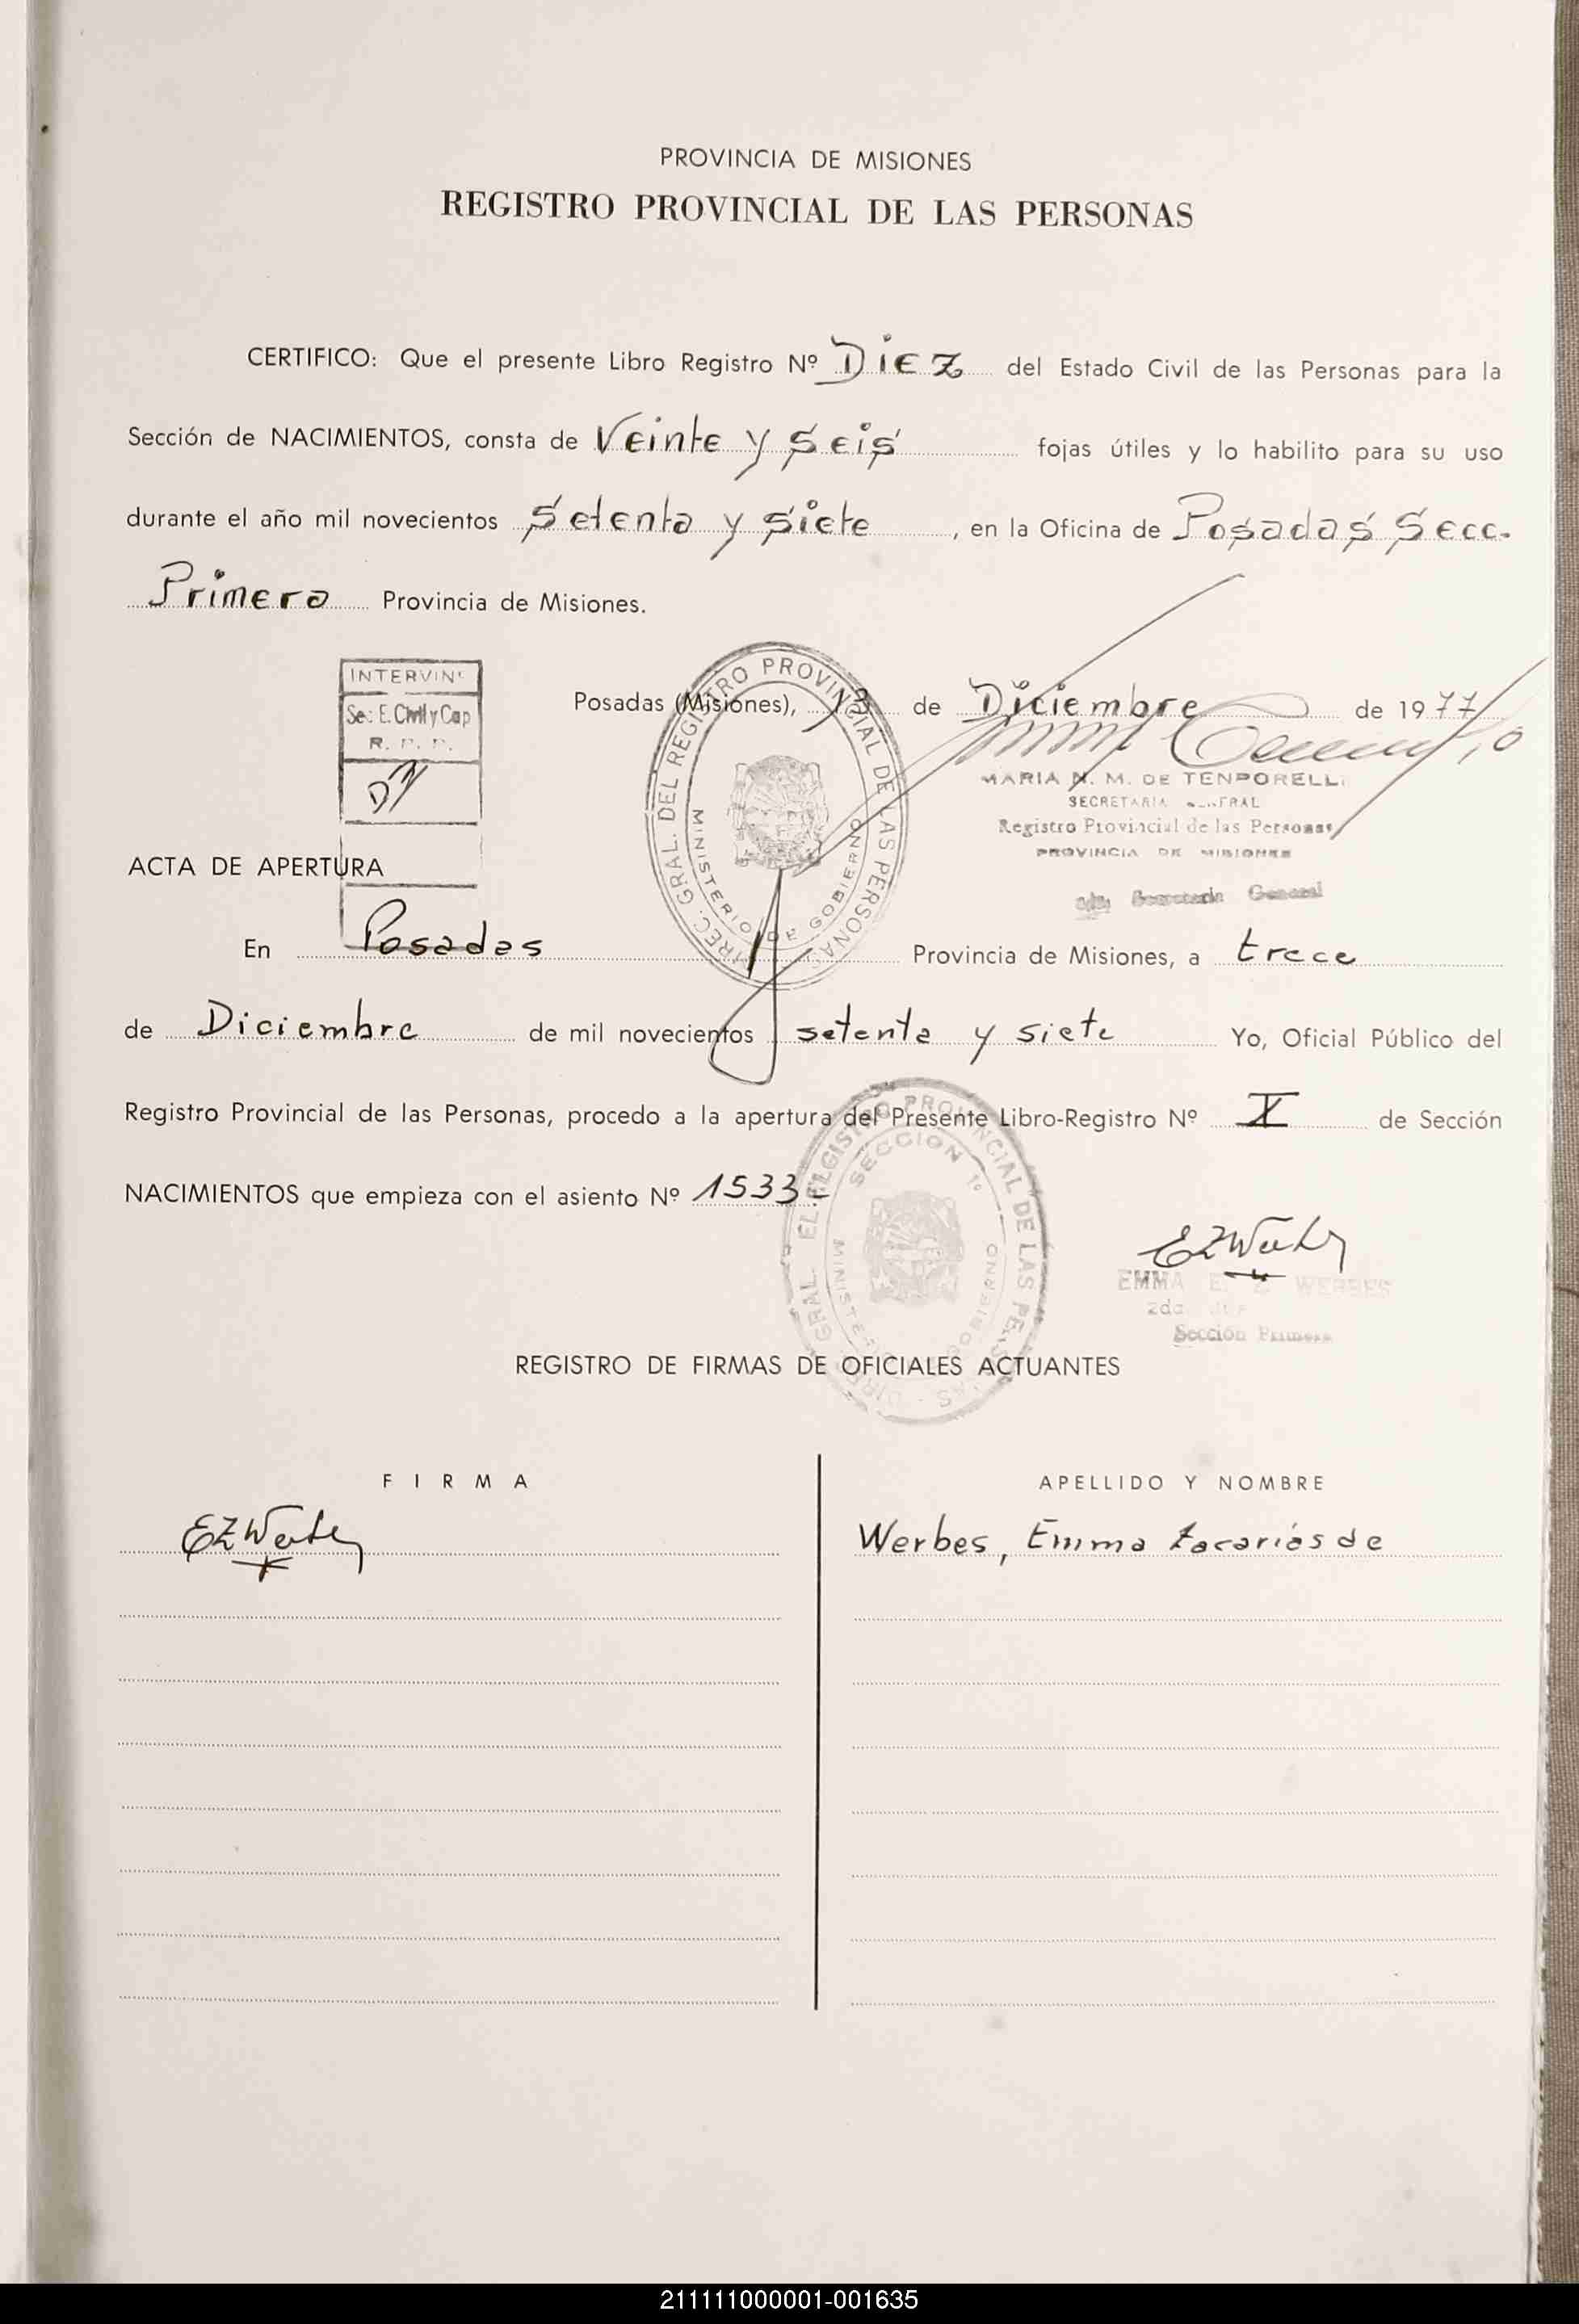 PROVINCIA DE MISIONES
REGISTRO PROVINCIAL DE LAS PERSONAS
CERTIFICO: Que el presente Libro Registro Nº Diez del Estado Civil de las Personas para la
Sección de NACIMIENTOS, consta de Veinte y Seis fojas útiles y lo habilito para su uso
durante el año mil novecientos Setenta y Siete, en la Oficina de Posadas Secc.
Primera Provincia de Misiones.
INTERVINº
Sec. E. Civil y Cap
R. P. P.
Posadas (Misiones), de Diciembre de 1977
DIREC. GRAL. DEL REGISTRO PROVINCIAL DE LAS PERSONAS
MINISTERIO DE GOBIERNO
MARIA N. M. DE TENPORELLI
SECRETARIA GENERAL
Registro Provincial de las Personas
PROVINCIA DE MISIONES
Secretaria General
ACTA DE APERTURA
En Posadas Provincia de Misiones, a trece
de Diciembre de mil novecientos setenta y siete Yo, Oficial Público del
Registro Provincial de las Personas, procedo a la apertura del Presente Libro-Registro Nº X de Sección
NACIMIENTOS que empieza con el asiento Nº 1533.-
DIREC. GRAL. DEL REGISTRO PROVINCIAL DE LAS PERSONAS
SECCION 1º
MINISTERIO DE GOBIERNO
EZWerbes
EMMA E. Z. WERBES
2da
Sección Primera
REGISTRO DE FIRMAS DE OFICIALES ACTUANTES
FIRMA APELLIDO Y NOMBRE
EZWerbes Werbes, Emma Zacarías de
211111000001-001635